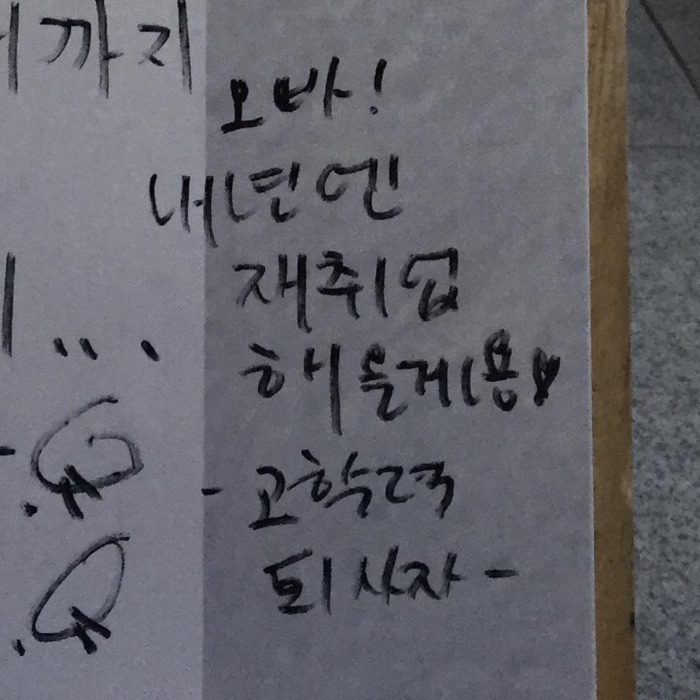 까지
오바!
내년엔
재취업
...
해올게용♥
- 고학력
퇴사자 -